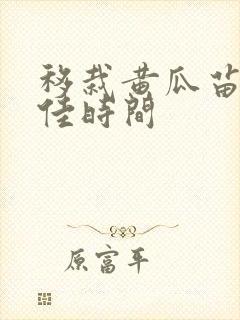 移裁黄瓜苗
佳時間
原富平